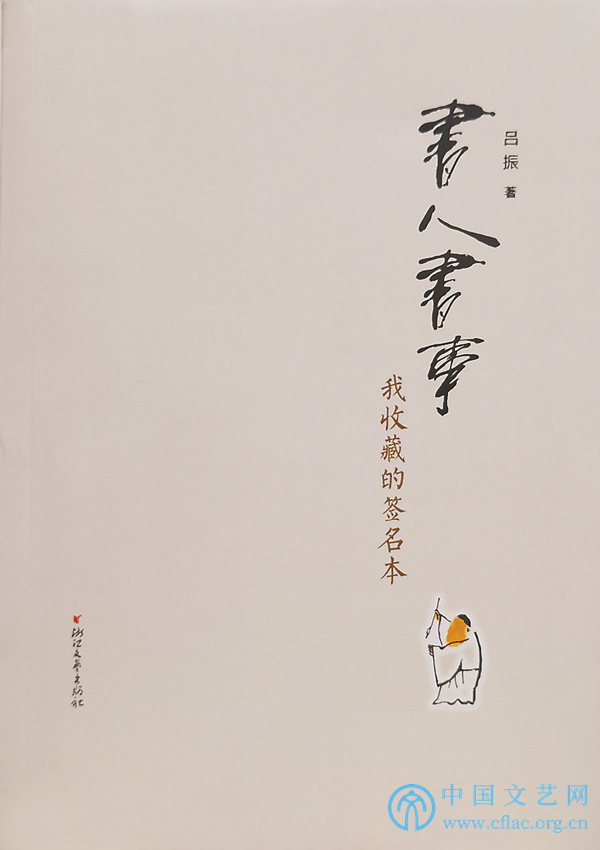 吕振 著
書人書事
我收藏的签名本
浙江文艺出版社
中国文艺网
www.cflac.org.cn